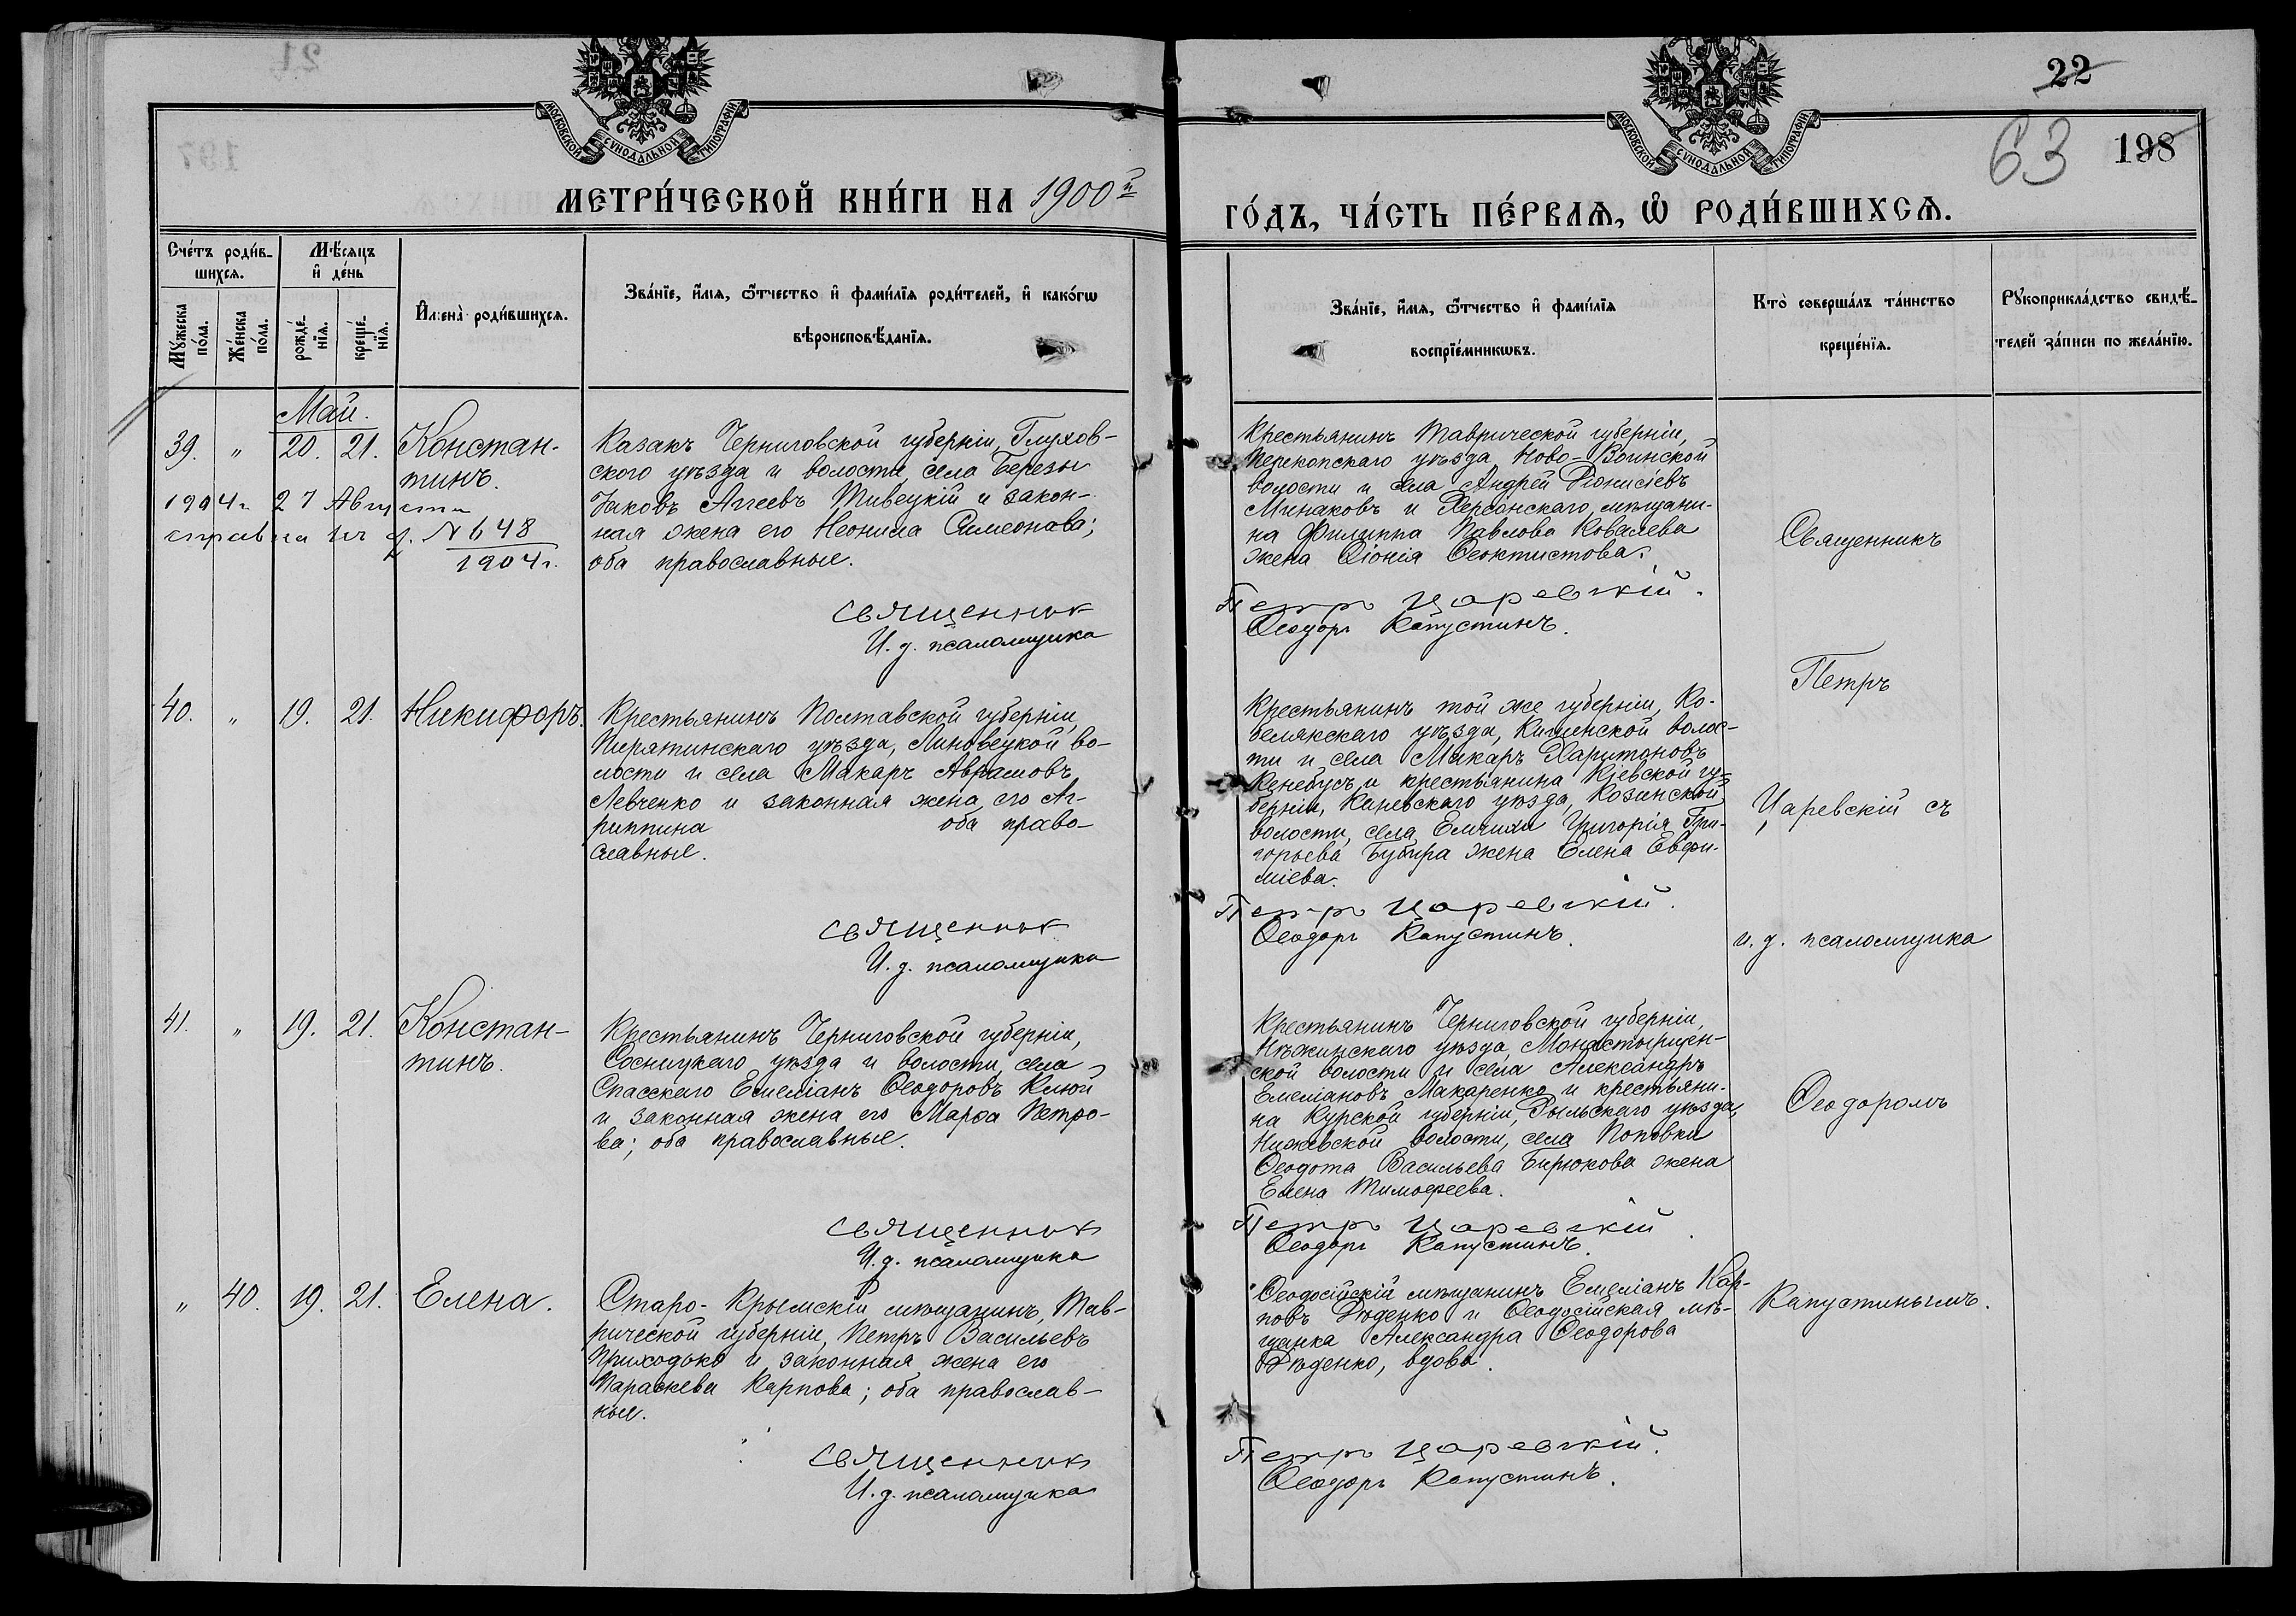 22
63 198
МОСКОВСКОЙ СѴНОДАЛЬНОЙ ТИПОГРАФІИ
МОСКОВСКОЙ СѴНОДАЛЬНОЙ ТИПОГРАФІИ
МЕТРИ́ЧЕСКОЙ КНИ́ГИ НА 1900й
ГО́ДЪ, ЧА́СТЬ ПЕ́РВАѦ, Ѽ РОДИ́ВШИХСѦ.
Сче́тъ роди́в-
шихсѧ.
Му́жеска
по́ла.
Же́нска
по́ла.
Мѣ́сѧцъ
и҆ де́нь
рожде́-
нїѧ.
креще́-
нїѧ.
И҆мена̀ роди́вшихсѧ.
Зва́нїе, и҆́мѧ, ѻ҆́тчество и҆ фами́лїѧ роди́телей, и҆ како́гѡ
вѣроисповѣ́данїѧ.
Зва́нїе, и҆́мѧ, ѻ҆́тчество и҆ фами́лїѧ
воспрїе́мникѡвъ.
Кто̀ соверша́лъ та́инство
креще́нїѧ.
Рꙋкоприкла́дство свидѣ́-
телей за́писи по жела́нїю.
Май.
39. " 20. 21. Констан-
тинъ.
1904 г. 27 Августа
справка по д. N 648
1904 г.
Казакъ Черниговской губерніи, Глухов-
ского уѣзда и волости, села Березы
Іаковъ Аггеевъ Тивецкій и закон-
ная жена его Неонила Симеонова;
оба православные.
священник
И. д. псаломщика
Крестьянинъ Таврической губерніи,
Перекопскаго уѣзда, Ново-Воинской
волости и села Андрей Діонисіевъ
Минаковъ и Херсонскаго мѣщани-
на Филиппа Павлова Ковалева
жена Ѳіонія Ѳеоктистова.
Петр Царевскій.
Ѳеодоръ Капустинъ.
40. " 19. 21. Никифоръ.
Крестьянинъ Полтавской губерніи,
Пирятинскаго уѣзда, Линовецкой во-
лости и села Макаръ Аврамовъ
Левченко и законная жена его Аг-
риппина оба право-
славные.
священник
И. д. псаломщика
Крестьянинъ той же губерніи, Ко-
белякскаго уѣзда, Кишенской волос-
ти и села Макаръ Харитоновъ
Кенебусъ и крестьянина Кіевской гу-
берніи, Каневскаго уѣзда, Козинской
волости, села Емчихи Григорія Гри-
горьева Бубира жена Елена Евфи-
міева.
Петр Царевскій.
Ѳеодоръ Капустинъ.
41. " 19. 21. Констан-
тинъ.
Крестьянинъ Черниговской губерніи,
Сосницкаго уѣзда и волости, села
Спасскаго Емеліанъ Ѳеодоровъ Клюй
и законная жена его Марѳа Петро-
ва; оба православные.
священник
И. д. псаломщика
Крестьянинъ Черниговской губерніи,
Нѣжинскаго уѣзда, Монастырищен-
ской волости и села Александръ
Емеліановъ Макаренко и крестьяни-
на Курской губерніи, Рыльскаго уѣзда,
волости, села Поповки
Ѳеодота Васильева Бирюкова жена
Елена Тимоѳеева.
Петр Царевскій
Ѳеодоръ Капустинъ.
" 40. 19. 21. Елена.
Старо-Крымскій мѣщанинъ, Тав-
рической губерніи, Петръ Васильевъ
Приходько и законная жена его
Параскева Карпова; оба православ-
ные.
священник
И. д. псаломщика
Ѳеодосійскій мѣщанинъ Емеліанъ Кар-
повъ Дюденко и Ѳеодосійская мѣ-
щанка Александра Ѳеодорова
Дюденко, вдова.
Петр Царевскій.
Ѳеодоръ Капустинъ.
Священникъ
Петръ
Царевскій съ
и. д. псаломщика
Ѳеодоромъ
Капустинымъ.